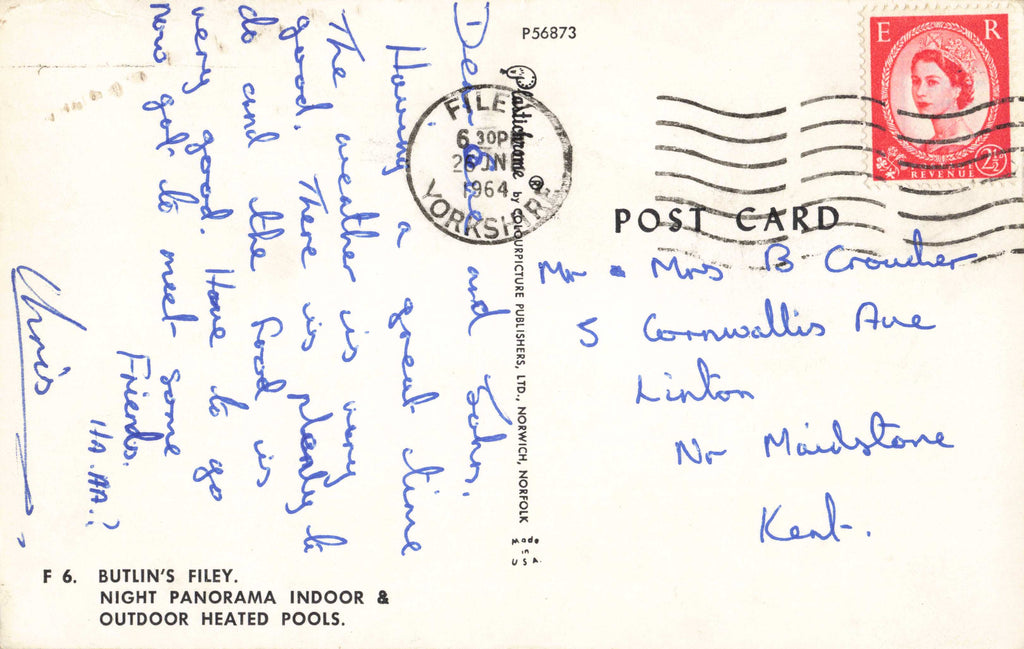 P56873
E R
REVENUE
2½
FILEY
6 30PM
1964
YORKSHIRE
POST CARD
Plastichrome ® by COLOURPICTURE PUBLISHERS, LTD., NORWICH, NORFOLK
Made
in
USA.
Dear and John.
Having a great time
The weather is very
good. There is plenty to
do and the food is
very good. Have to go
now got to meet some
Friends.
HA.HA.?
Chris
Mr & Mrs B Croucher
5 Cornwallis Ave
Linton
Nr Maidstone
Kent.
F 6. BUTLIN'S FILEY.
NIGHT PANORAMA INDOOR &
OUTDOOR HEATED POOLS.